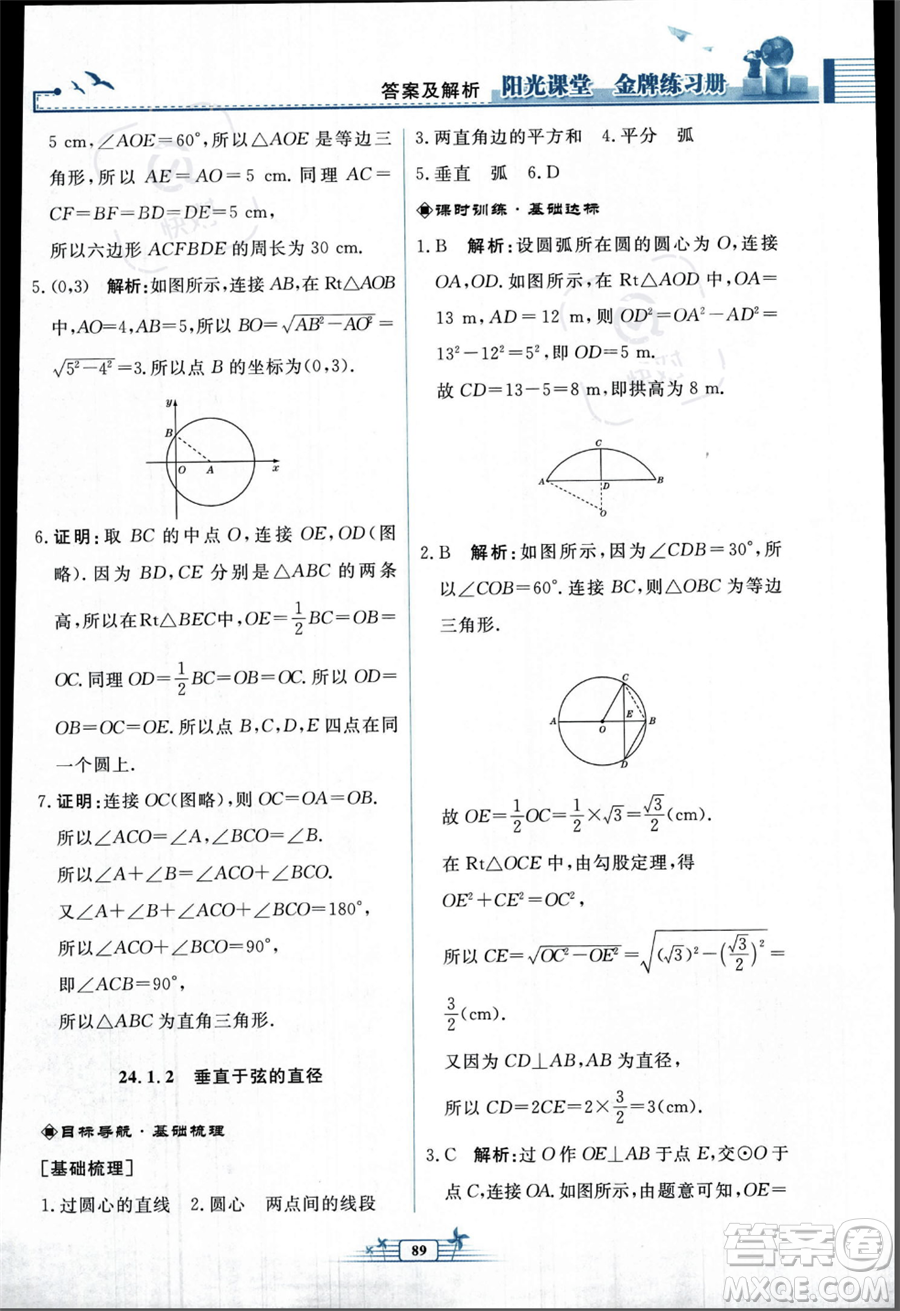 答案及解析 阳光课堂 金牌练习册
5 cm,∠AOE=60°,所以△AOE 是等边三
角形,所以 AE=AO=5 cm. 同理 AC=
CF=BF=BD=DE=5 cm,
所以六边形 ACFBDE 的周长为 30 cm.
5.(0,3) 解析:如图所示,连接 AB,在 Rt△AOB
中,AO=4,AB=5,所以 BO=√(AB²-AO²)=
√(5²-4²)=3.所以点 B 的坐标为(0,3).
y
B
O A x
6.证明:取 BC 的中点 O,连接 OE,OD(图
略).因为 BD,CE 分别是△ABC 的两条
高,所以在Rt△BEC中,OE=1/2BC=OB=
OC.同理 OD=1/2BC=OB=OC.所以 OD=
OB=OC=OE.所以点 B,C,D,E 四点在同
一个圆上.
7.证明:连接 OC(图略),则 OC=OA=OB.
所以∠ACO=∠A,∠BCO=∠B.
所以∠A+∠B=∠ACO+∠BCO.
又∠A+∠B+∠ACO+∠BCO=180°,
所以∠ACO+∠BCO=90°,
即∠ACB=90°,
所以△ABC 为直角三角形.
24.1.2 垂直于弦的直径
目标导航·基础梳理
[基础梳理]
1.过圆心的直线 2.圆心 两点间的线段
3.两直角边的平方和 4.平分 弧
5.垂直 弧 6.D
课时训练·基础达标
1.B 解析:设圆弧所在圆的圆心为 O,连接
OA,OD.如图所示,在 Rt△AOD 中,OA=
13 m,AD=12 m,则 OD²=OA²-AD²=
13²-12²=5²,即 OD=5 m.
故 CD=13-5=8 m,即拱高为 8 m.
C
A D B
O
2.B 解析:如图所示,因为∠CDB=30°,所
以∠COB=60°.连接 BC,则△OBC 为等边
三角形.
C
A O E B
D
故 OE=1/2OC=1/2×√3=√3/2(cm).
在 Rt△OCE 中,由勾股定理,得
OE²+CE²=OC²,
所以 CE=√(OC²-OE²)=√((√3)²-(√3/2)²)=
3/2(cm).
又因为 CD⊥AB,AB 为直径,
所以 CD=2CE=2×3/2=3(cm).
3.C 解析:过 O 作 OE⊥AB 于点 E,交⊙O 于
点C,连接 OA.如图所示,由题意可知,OE=
89
答案圈
MXQE.COM